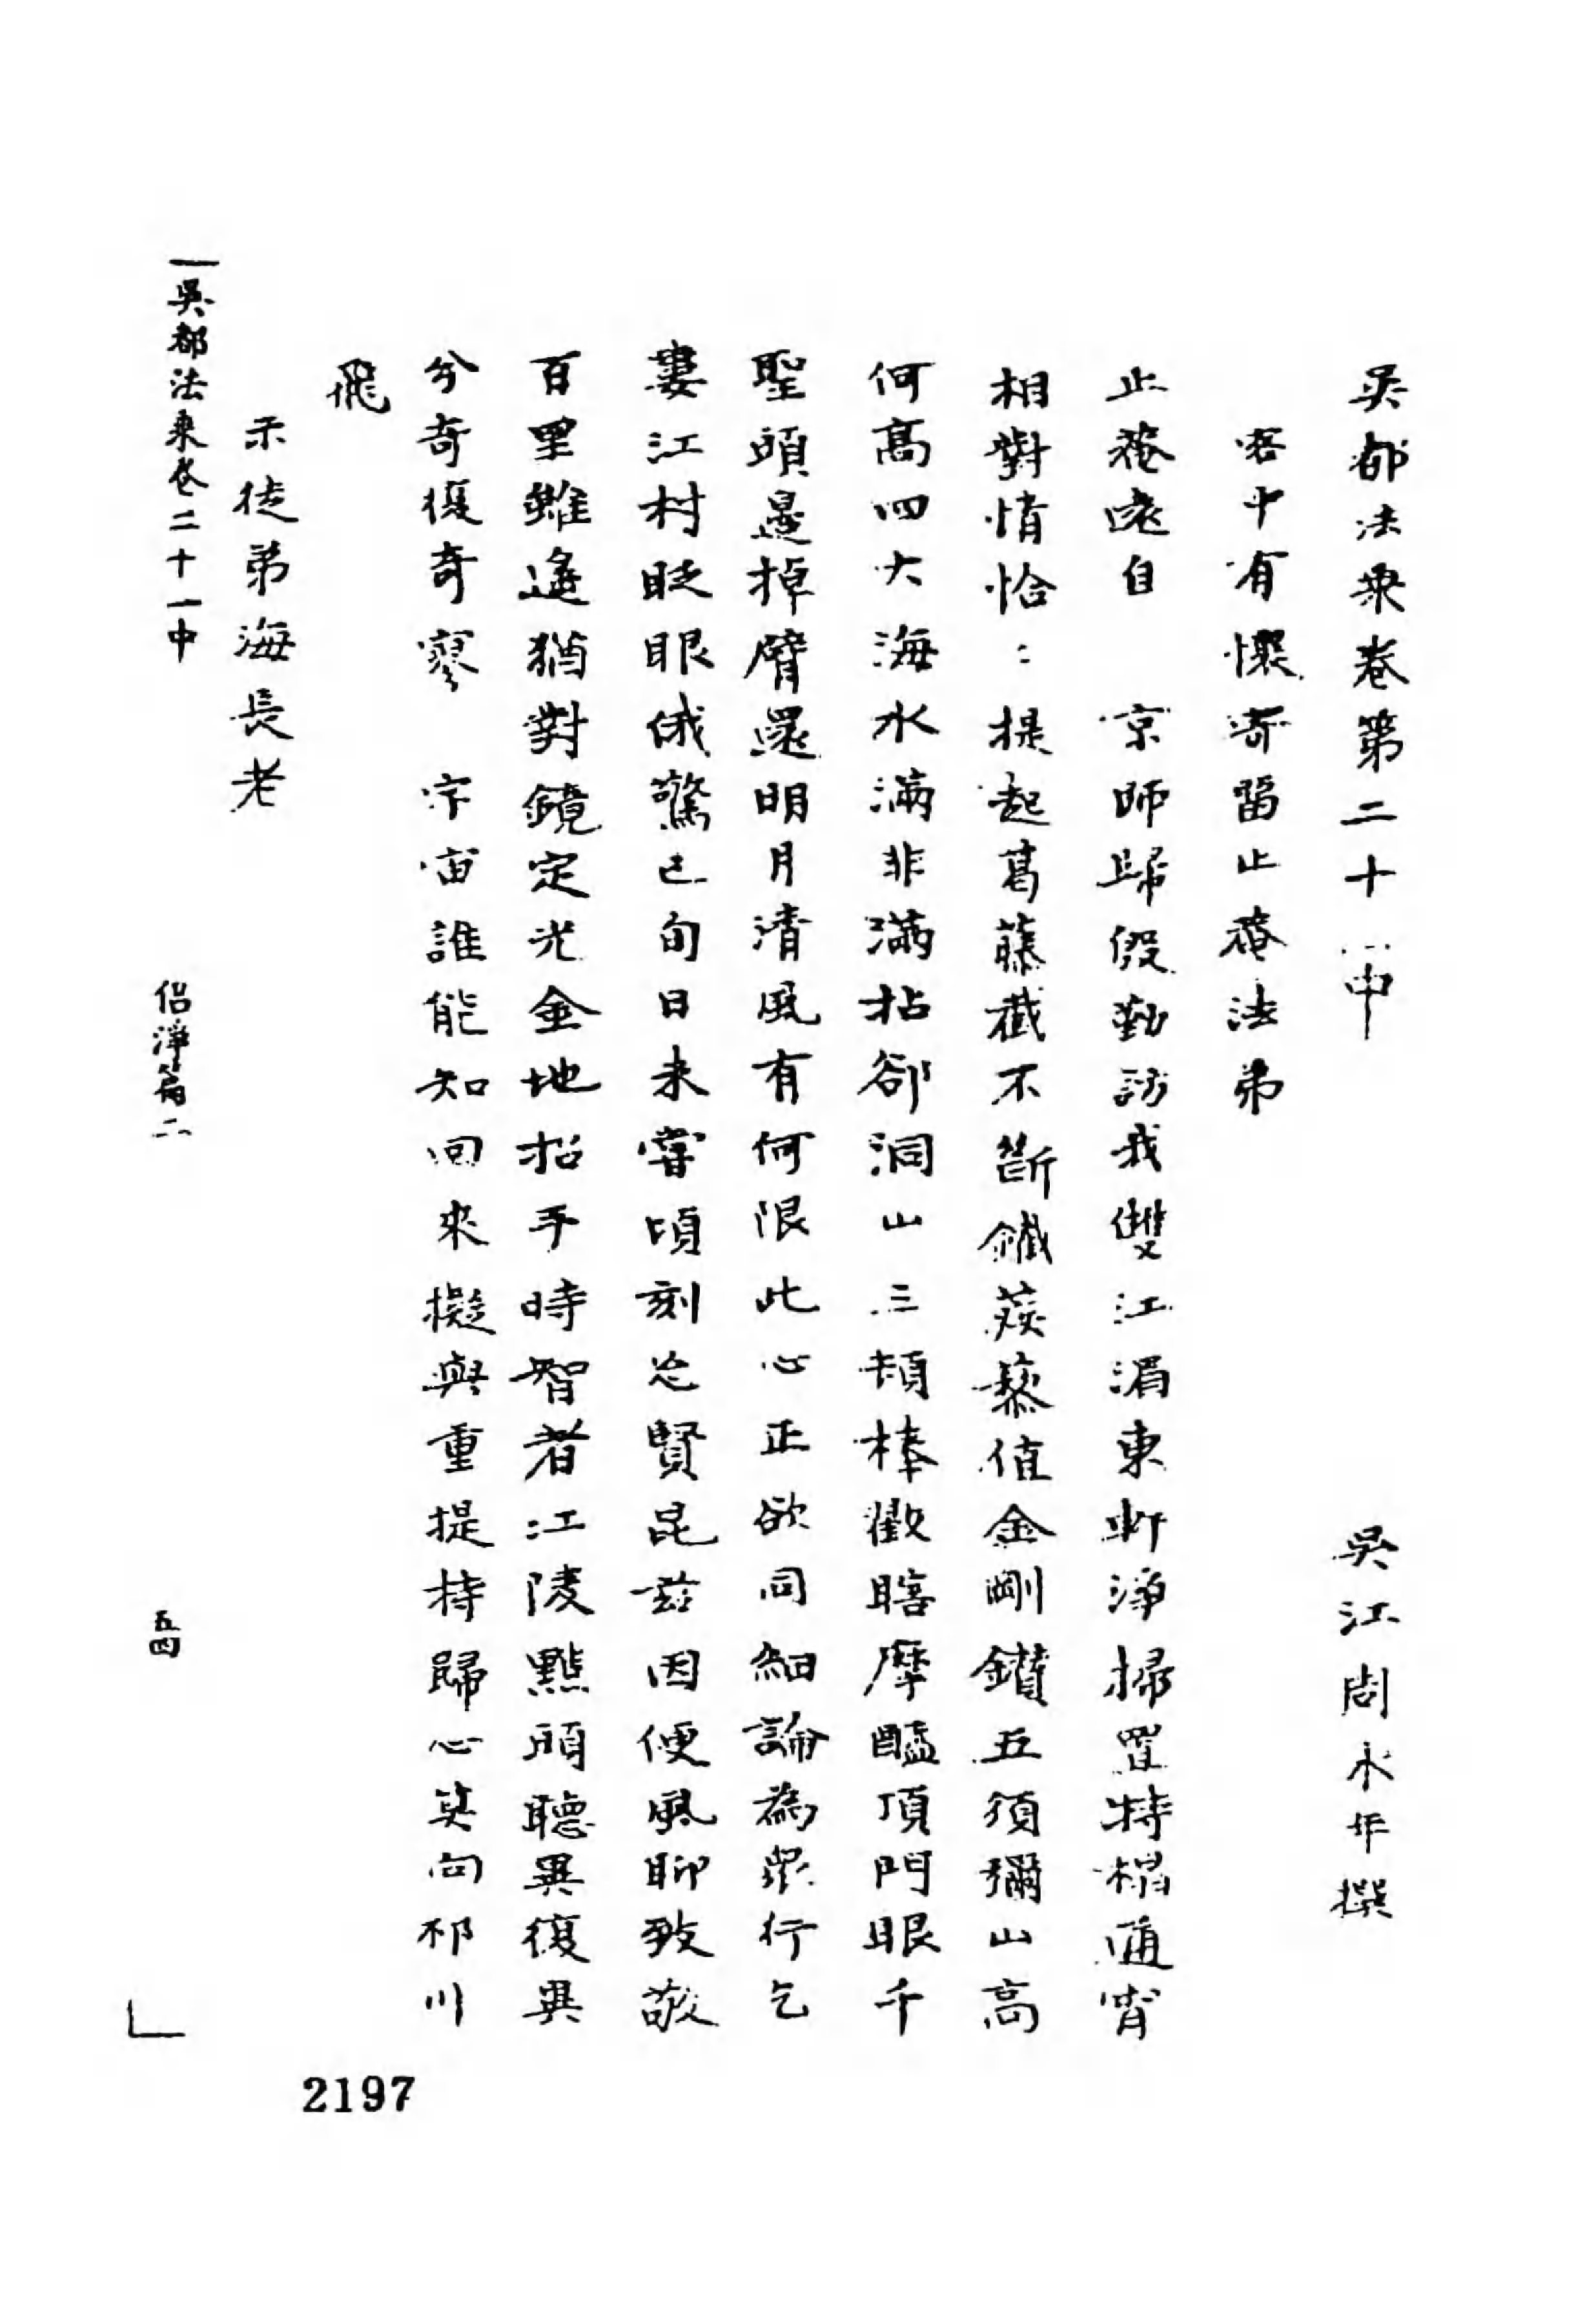 吴都法乘卷第二十一中
吳江周永年撰
客中有懷寄留止菴法弟
止菴遠自　京師歸假勤訪我雙江湄東軒淨掃置特榻通宵
相對情恰:提起葛藤截不斷鐵蒺藜值金剛鑽五須彌山高
何高四大海水滿非滿拈卻洞山三頓棒歡瞎摩醯頂門眼千
聖頭邊掉臂還明月清風有何限此心正欲同細論為衆行乞
婁江村眨眼俄驚已旬日未嘗頃刻忘賢昆茲因便風聊致敬
百里雖遙猶對鏡定光金地招手時智者江陵點頭聽異復異
兮奇復奇寥　宇宙誰能知回來擬與重提持歸心莫向邳川
飛
示徒弟海長老
吳都法乘卷二十一中
侣淨篇二
五四
2197